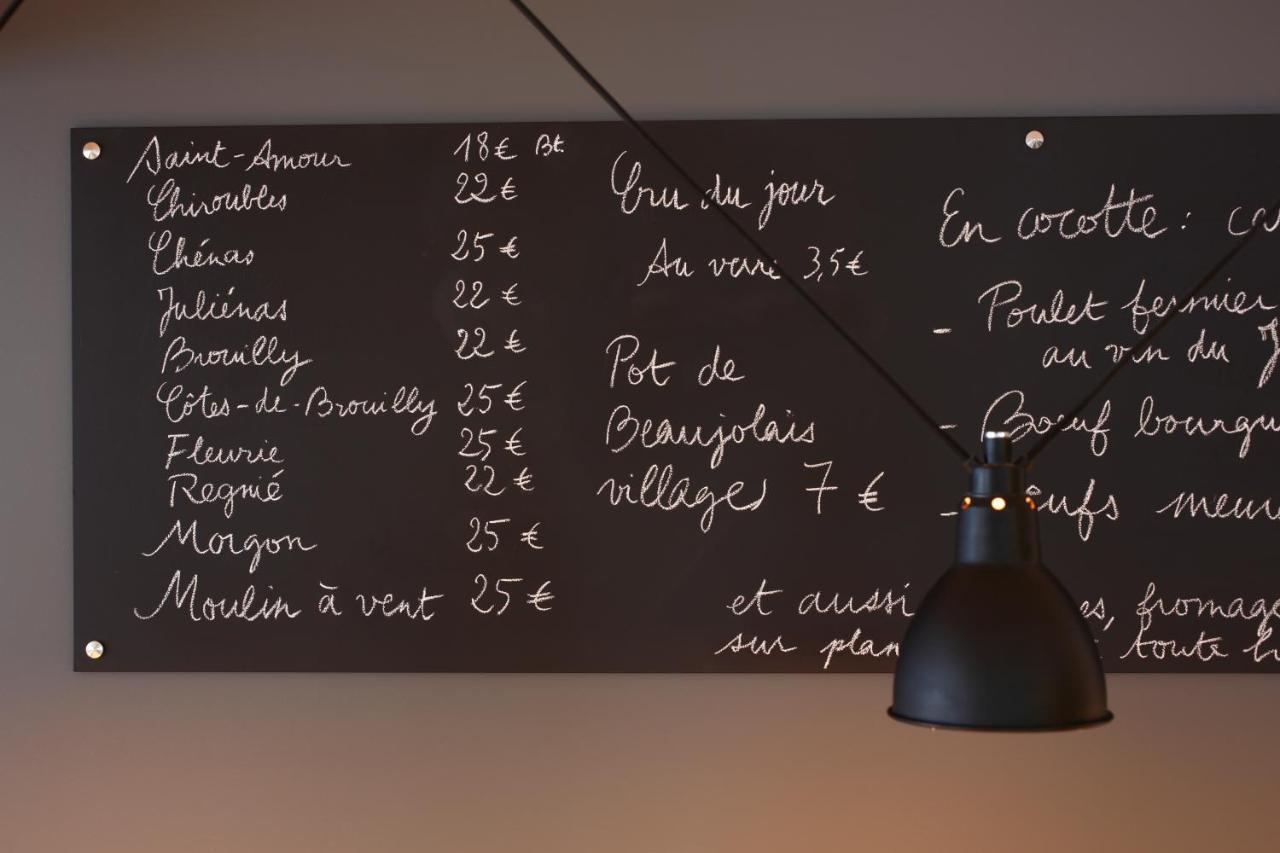 Saint-Amour 18€ Bt.
Chiroubles 22€
Chénas 25€
Juliénas 22€
Brouilly 22€
Côtes-de-Brouilly 25€
Fleurie 25€
Regnié 22€
Morgon 25€
Moulin à vent 25€
Cru du jour
Au verre 3,5€
Pot de
Beaujolais
villages 7€
En cocotte :
- Poulet fermier
au vin du
- Boeuf
-
et aussi
sur
toute